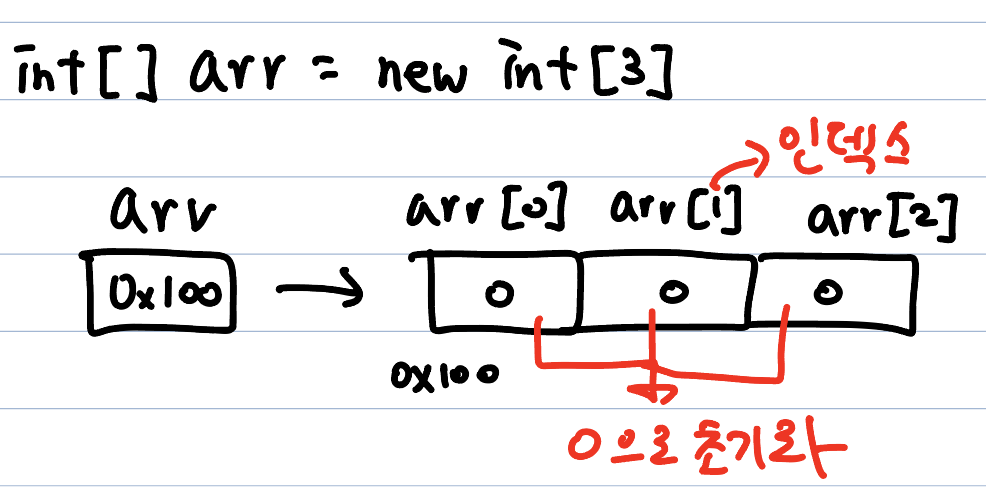 int[] arr = new int[3]
인덱스
arr arr[0] arr[1] arr[2]
0x100 → 0 0 0
0x100
0으로 초기화